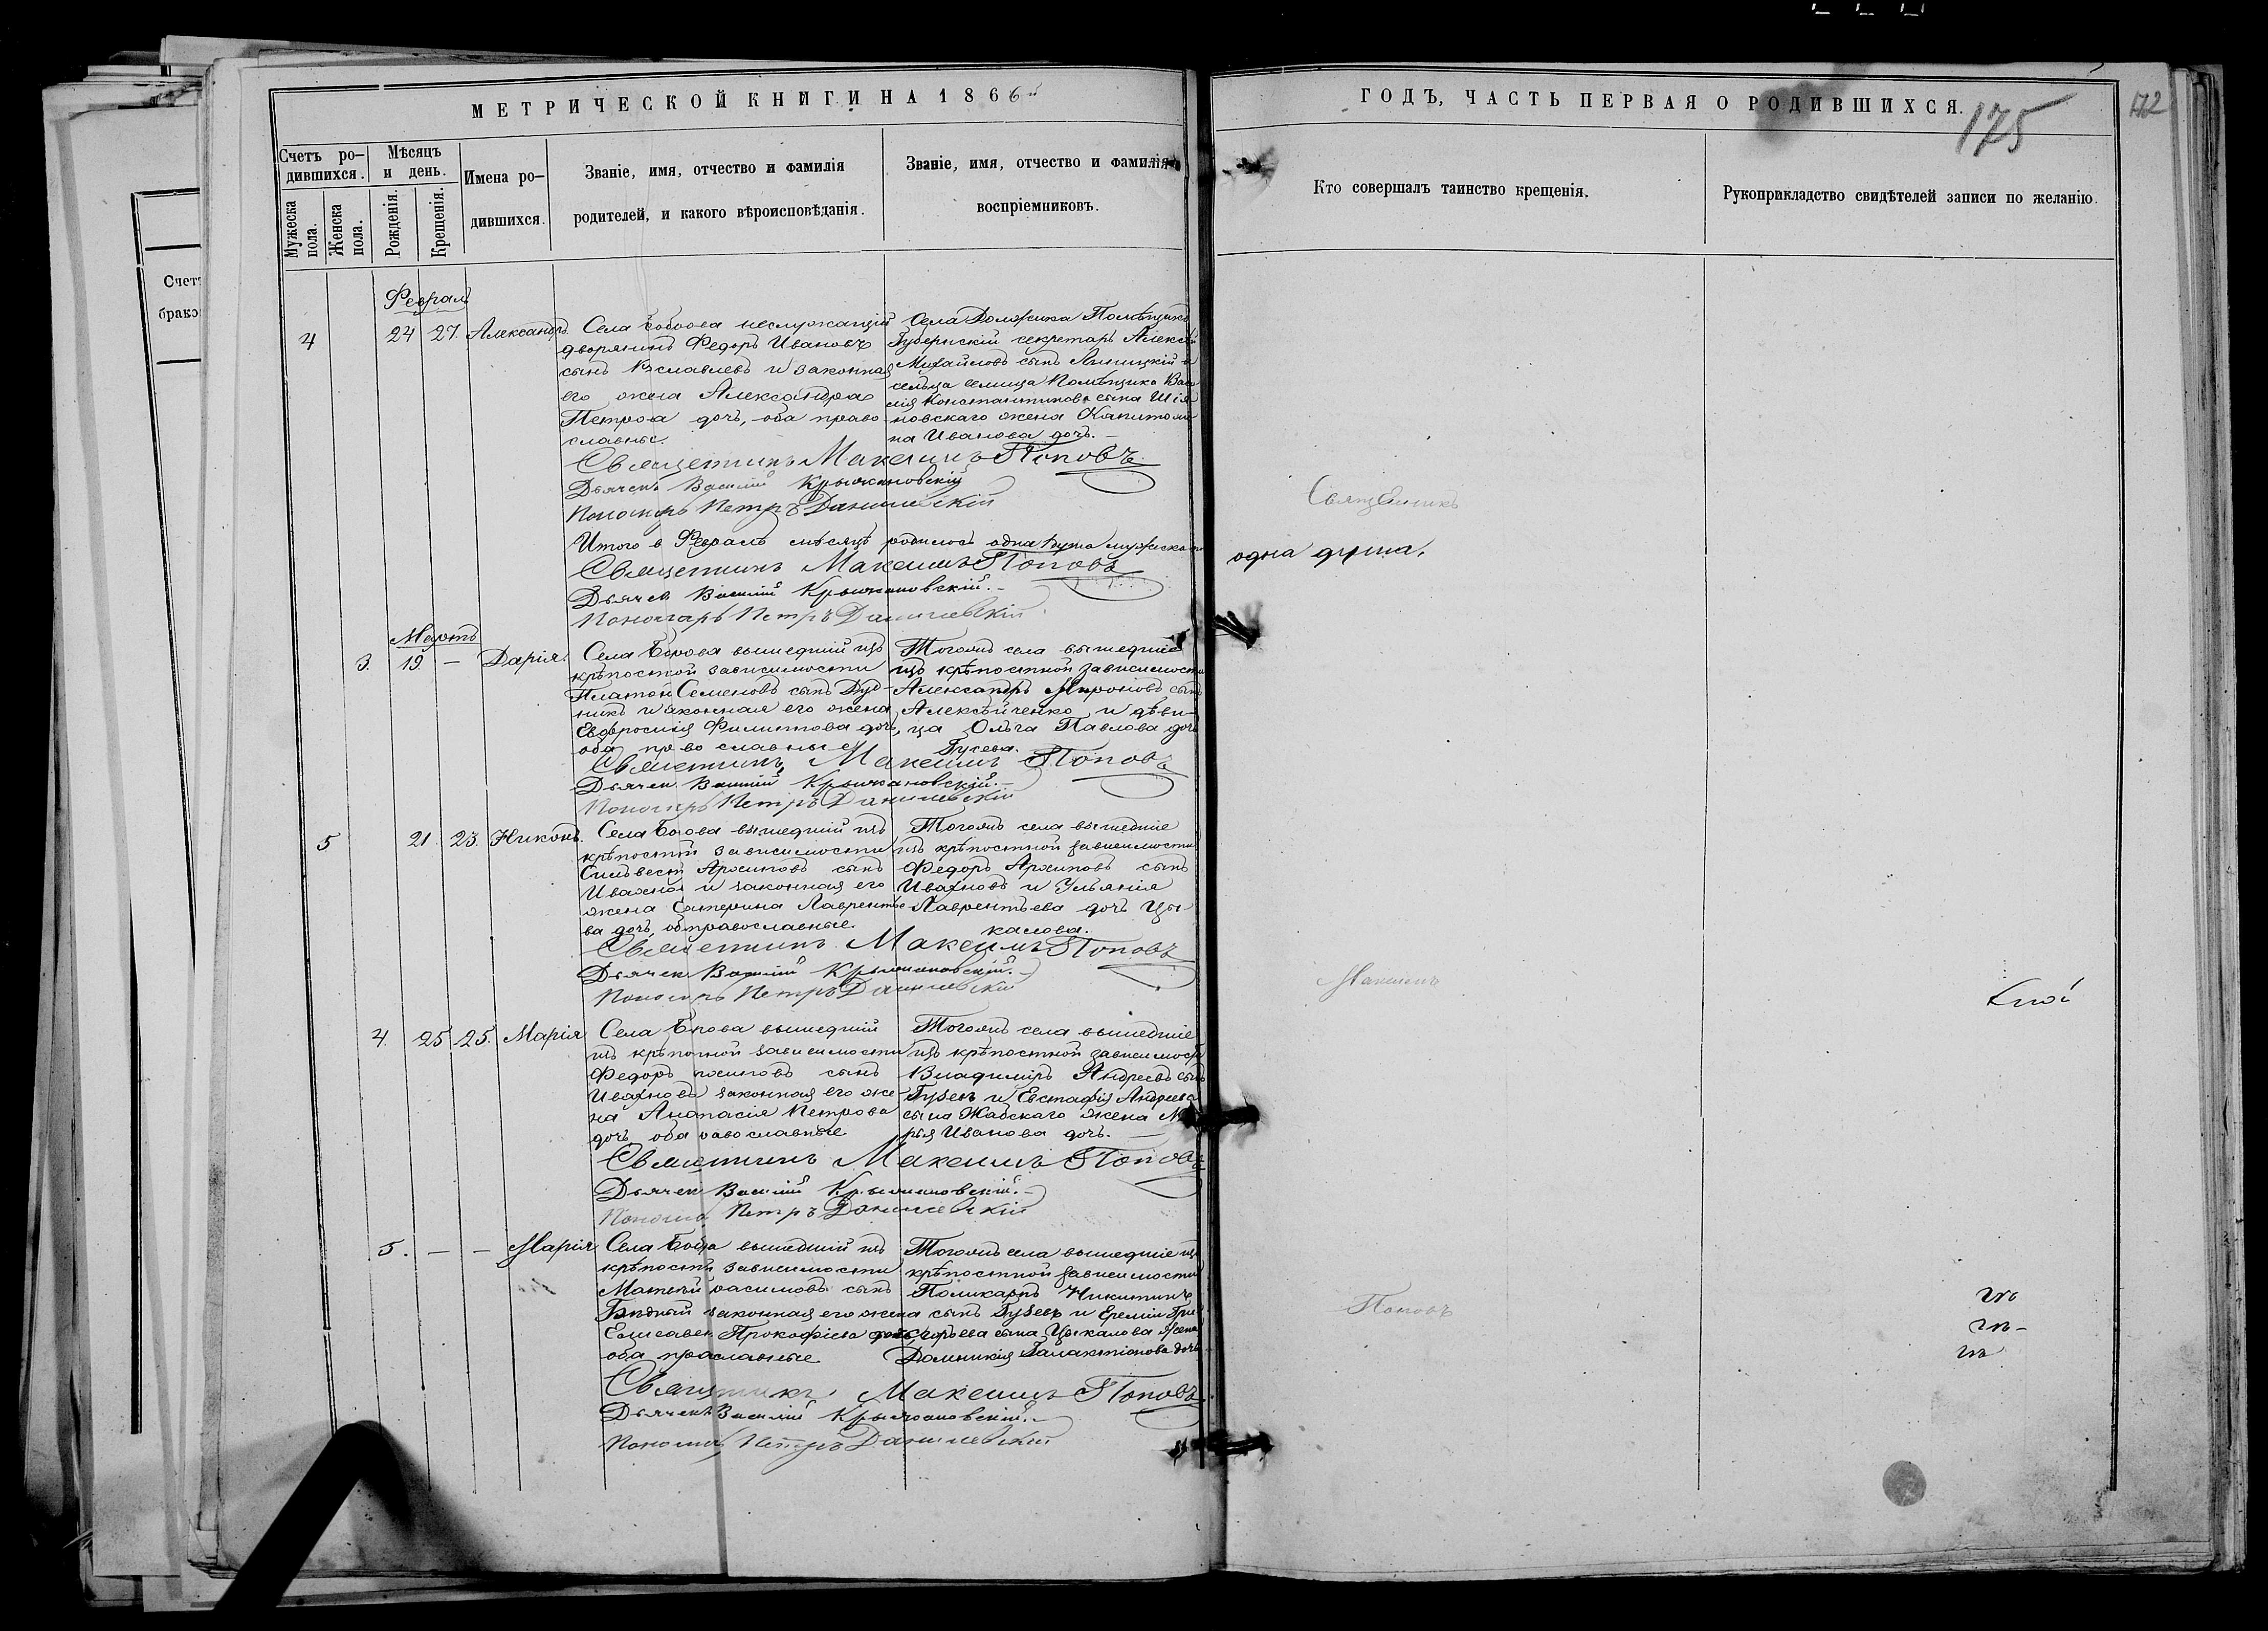 МЕТРИЧЕСКОЙ КНИГИ НА 1866й
ГОДЪ, ЧАСТЬ ПЕРВАЯ О РОДИВШИХСЯ.
175
172
Счетъ ро-
дившихся.
Мужеска пола.
Женска пола.
Мѣсяцъ
и день.
Рожденія.
Крещенія.
Имена ро-
дившихся.
Званіе, имя, отчество и фамилія
родителей, и какого вѣроисповѣданія.
Званіе, имя, отчество и фамилія
воспріемниковъ.
Кто совершалъ таинство крещенія.
Рукоприкладство свидѣтелей записи по желанію.
Счет
брако
Феврал
4 24 27. Александръ.
Села неслужащій
дворянинъ Федоръ Ивановъ
сынъ и законная
его жена Александра
Петрова дочь, оба право
славные.
Села Должика Помѣщикъ
Губернскій секретарь Алексѣй
Михайловъ сынъ и
сельца Помѣщика Васи
лія Константинова сына Шія
новскаго жена Капитоли
на Иванова дочь. —
Священникъ Максимъ Поповъ
Дьячекъ Василій Крыжановскій
Пономарь Петръ Данилевскій
Итого в Февралѣ мѣсяцѣ родилось одна душа мужеска
одна душа.
Священникъ Максимъ Поповъ
Дьячек Василій Крыжановскій. —
Пономарь Петръ Данилевскій
Мартъ
3. 19 — Дарія.
Села Борова вышедшій изъ
крѣпостной зависимости
Платон Семеновъ сынъ Дуд-
никъ и законная его жена
Евфросинія Филиппова дочь,
оба православные
Тогожъ села вышедшіе
изъ крѣпостной зависимости
Александръ Мироновъ сынъ
Алексѣйченко и дѣви-
ца Ольга Павлова дочь
Гусева.
Священникъ Максимъ Поповъ
Дьячек Василій Крыжановскій. —
Пономарь Петръ Данилевскій
5 21 23. Никонъ.
Села Борова вышедшій изъ
крѣпостной зависимости
Сильвест Архиповъ сынъ
Ивахнов и законная его
жена Екатерина Лаврентье
ва дочь, оба православные.
Тогожъ села вышедшіе
изъ крѣпостной зависимости
Федоръ Архиповъ сынъ
Ивахновъ и Ульянія
Лаврентьева дочь Цы
калова.
Священникъ Максимъ Поповъ
Дьячек Василій Крыжановскій. —
Пономарь Петръ Данилевскій
4. 25 25. Марія
Села Борова вышедшій
изъ крѣпостной зависимости
Федоръ сынъ
Ивахновъ законная его же
на Анастасія Петрова
дочь оба православные
Тогожъ села вышедшіе
изъ крѣпостной зависимост
Владимиръ Андреевъ сынъ
Губенъ и Евстафія Андреева
сына Жабскаго жена Ма
рья Иванова дочь. —
Священникъ Максимъ Поповъ
Дьячек Василій Крыжановскій. —
Пономарь Петръ Данилевскій
5. — — Марія
Села Борова вышедшій изъ
крѣпостн зависимости
Матвѣй сынъ
Бѣдный законная его жена
Елисавет Прокофіева дочь
оба православные
Тогожъ села вышедшіе из
крѣпостной зависимости
Поликарпъ Никитинъ
сынъ Губевъ и Еремія Гри
горьева сына Цыкалова жена
Домникія Галактіонова дочь
Священникъ Максимъ Поповъ
Дьячекъ Василій Крыжановскій. —
Пономарь Петръ Данилевскій
Священникъ
Максимъ
Поповъ